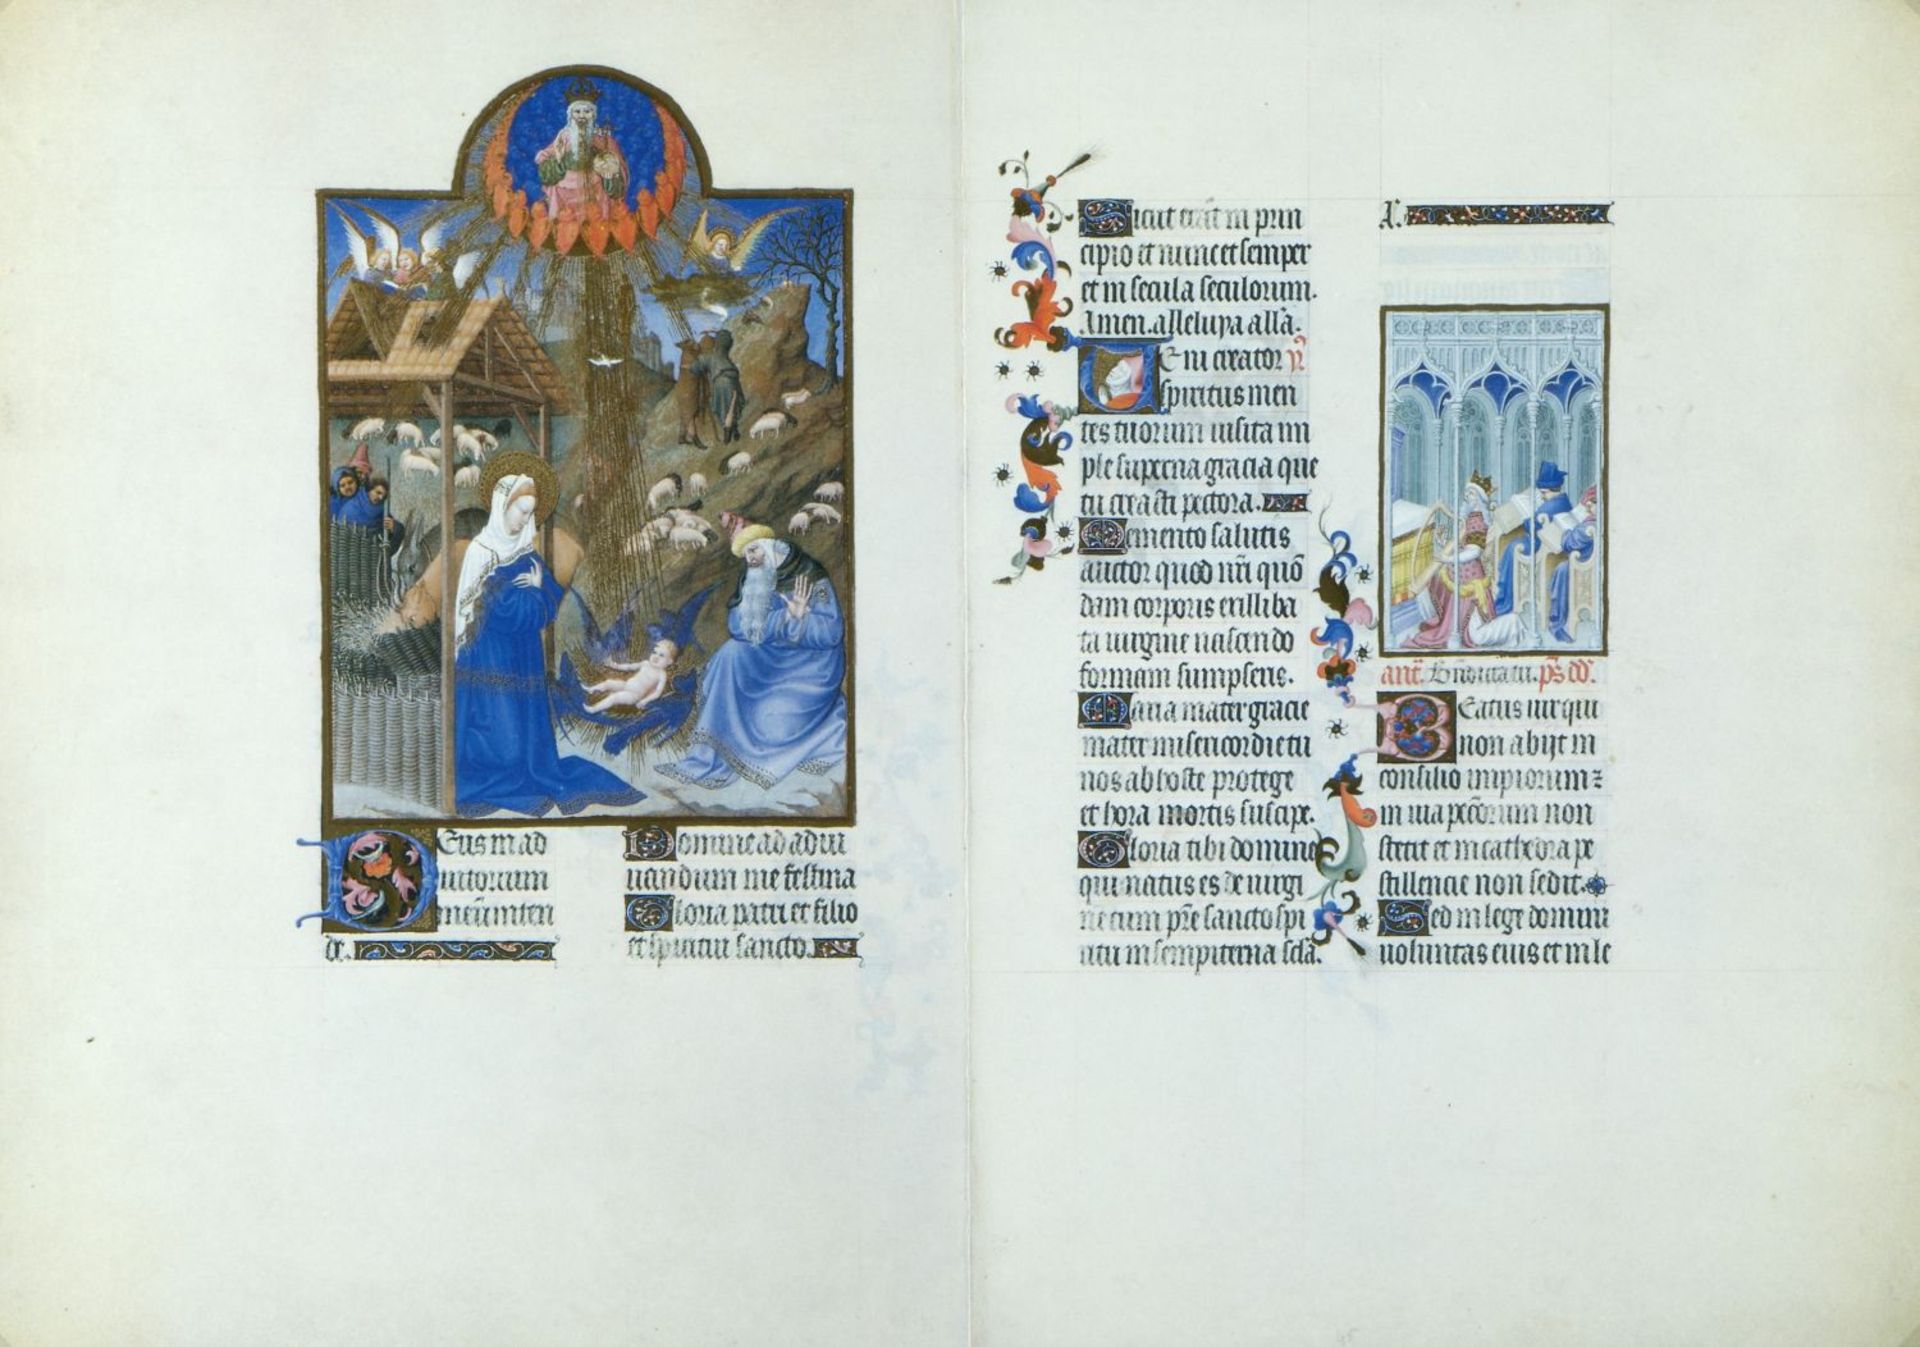 Deus in ad
iutorium
meu inten
de.
Domine ad adiu
uandum me festina
Gloria patri et filio
et spiritui sancto.
Sicut erat in prin
cipio et nunc et semper
et in secula seculorum.
Amen. alleluya alla.
Veni creator
spiritus men
tes tuorum uisita im
ple superna gracia que
tu creasti pectora.
Memento salutis
auctor quod nri quo
dam corporis ex illiba
ta uirgine nascendo
formam sumpseris.
Maria mater gracie
mater misericordie tu
nos ab hoste protege
et hora mortis suscipe.
Gloria tibi domine
qui natus es de uirgi
ne cum pre sancto spi
ritu in sempiterna scla.
A.
ant. ps. dd.
Beatus uir qui
non abijt in
consilio impiorum z
in uia peccorum non
stetit et in cathedra pe
stillencie non sedit.
Sed in lege domini
uoluntas eius et in le